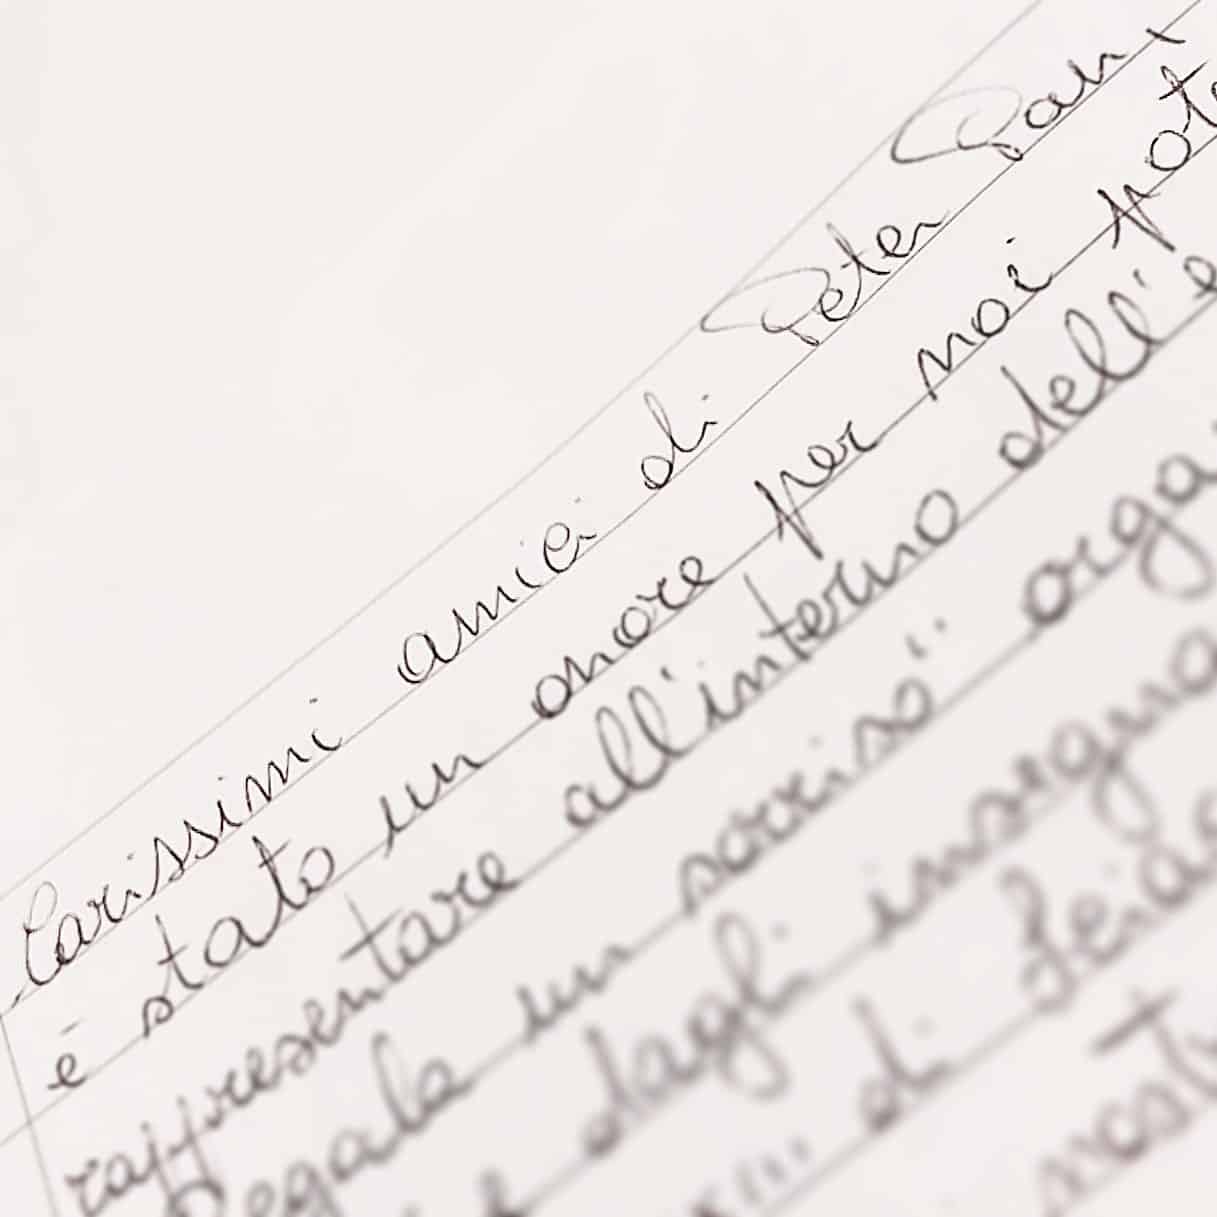 Carissimi amici di Peter Pan,
è stato un onore per noi pot
rappresentare all'interno dell'e
Regala un sorriso" orga
dagli insegna
di